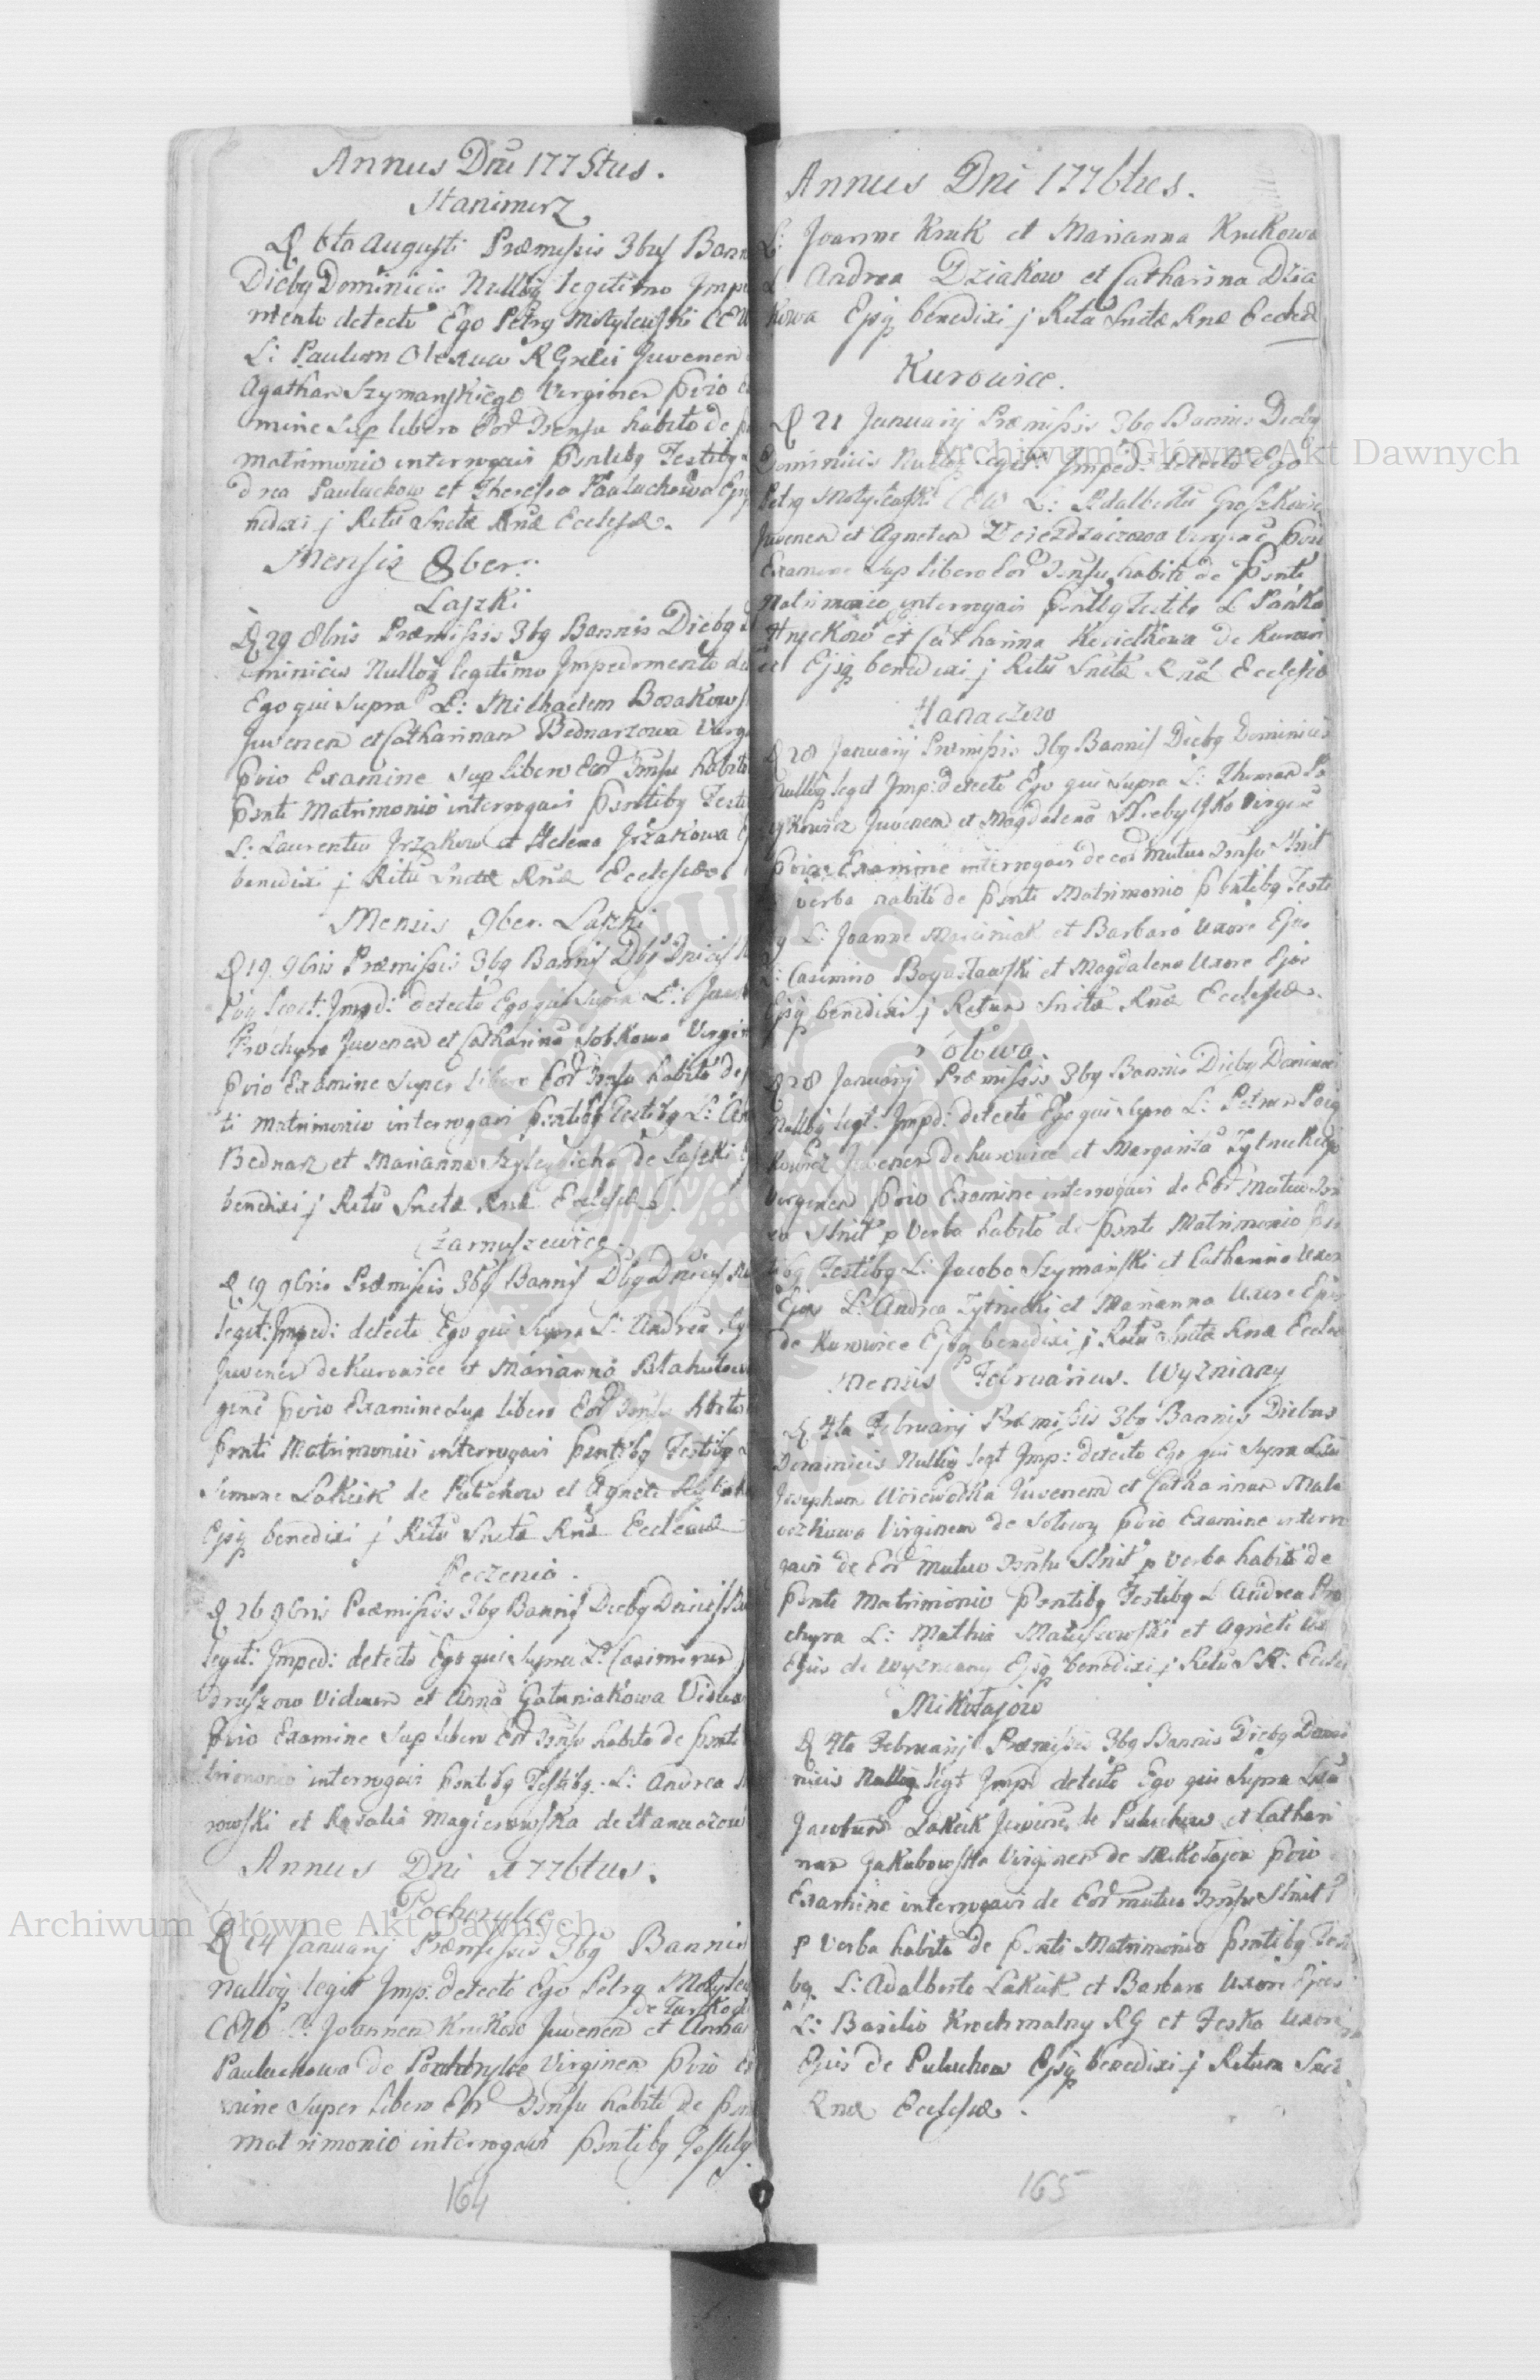 Annus Dni 1775tus.
Stanimirz
D 6to Augusti Præmissis 3bus Bann
Diebq Dominicis Nulloq legitimo Impe
mento detecto Ego Petrq Motylewski CEW
L: Paulum Olexuw R Græci Juvenem
Agatham Szymanskiego Virginem pvio
mine Sup libero Eor Consu habito de
matrimonio interrogavi psntibq Testibq
drea Pauluchow et Theresia Pauluchowa Ejsq
nedixi j Ritu Snctæ Rnæ Ecclesiæ.
Mensis 8ber:
Laszki
D 29 8bris Præmissis 3bq Bannis Diebq
minicis Nulloq legitimo Impedimento de
Ego qui Supra L: Michaelem Bozakow
Juvenem et Catharinam Bednarzowa Virg
pvio Examine Sup libero Eor Consu habito
psnti Matrimonio interrogavi psntibq Testi
L: Laurentio Jrzakow et Helena Jrzakowa
benedixi j Ritu Snctæ Rnæ Ecclesiæ
Mensis 9ber. Laszki
D 19 9bris Præmissis 3bq Bannis Dbq Dnicis
loq legit: Impd: detecto Ego qui Supra L:
Prochyra Juvenem et Catharina Sobkowa Virgin
pvio Examine Super libero Eor Consu habito de
ti matrimonio interrogavi psntibq Testibq L: An
Bednarz et Marianna de Laszki
benedixi j Ritu Snctæ Rnæ Ecclesiæ.
Czarnuszewice.
D 19 9bris Præmissis 3bq Bannis Dbq Dnicis
legit: Impedi: detecto Ego qui Supra L: Andrea
Juvenem de Kurowice et Marianna Blahutow
ginē pvio Examine Sup libero Eor Consu hbito
psnti Matrimonio interrogavi psntibq Testibq
Simone Lakuk de Puluchow et Agnete
Ejsq benedixi j Ritu Snctæ Rnæ Ecclesiæ
Peczenia.
D 26 9bris Præmissis 3bq Bannis Diebq Dnicis
legit: Impedi: detecto Ego qui Supra L: Casimirum
druszow Viduum et Anna Gataniakowa Vidua
pvio Examine Sup libero Eor Consu habito de psnti
trimonio interrogavi psntibq Testibq. L: Andrea
rowski et Rosalia Magierowska de Hanaczow
Annus Dni 1776tus.
Pochorylce
D 14 Januarij Præmissis 3bq Bannis
Nulloq legit Imp: detecto Ego Petrq Motylew
de Turkoc
CEW L: Joannem Krukow Juvenem et Anna
Pauluchowa de Pochorylce Virginem pvio
mine Super libero Eor Consu habito de psn
matrimonio interrogavi psntibq Testibq.
164
Annus Dni 1776tus.
L: Joanne Kruk et Marianna Krukowa
L Andrea Dziakow et Catharina Dzia
kowa Ejsq benedixi j Ritu Snctæ Rnæ Eccles
Kurowice.
D 21 Januarij Præmissis 3bq Bannis Diebq
Dominicis Nulloq legit: Imped: detecto Ego
Petrq Motylewski CEW L: Adalbertu Groszkowic
Juvenem et Agnetem Virginē pvio
Examine Sup libero Eor Consu habito de psnti
Matrimonio interrogavi psntibq Testibq L Panko
Hnyckow et Catharina de Kurow
ice Ejsq benedixi j Ritu Snctæ Rnæ Ecclesiæ
Hanaczow
D 28 Januarij Præmissis 3bq Bannis Diebq Dominicis
Nulloq legit Imp: detecto Ego qui Supra L: Thomam
Juvenem et Magdalena Virginē
pvio Examine interrogavi de eor mutuo Consu Snit
p verba habito de psnti Matrimonio psntibq Testi
bq L: Joanne Marciniak et Barbara Uxore Ejus
L: Casimiro Boguslawski et Magdalena Uxore Ejus
Ejsq benedixi j Ritum Snctæ Rnæ Ecclesiæ.
Solowa
D 28 Januarij Præmissis 3bq Bannis Diebq Dominici
Nulloq legt: Impd: detecto Ego qui Supra L: Petrum
Juvenem de Kurowice et Margarita
Virginem pvio Examine interrogavi de Eor Mutuo Con
su Snit p Verba habito de psnti Matrimonio psn
tibq Testibq L: Jacobo Szymanski et Catharina Uxor
Ejus L: Andrea Zytnicki et Marianna Uxore Ejus
de Kurowice Ejsq benedixi j Ritu Snctæ Rnæ Eccles
Mensis Februarius. Wyzniany
D 4ta Februarij Præmissis 3bq Bannis Diebus
Dominicis Nulloq legt Imp: detecto Ego qui Supra
Josephum Worewodka Juvenem et Catharinam Mala
Virginem de Solowy pvio Examine interro
gavi de Eor mutuo Consu Snit p Verba habito de
psnti Matrimonio psntibq Testibq L Andrea Pro
chyra L: Mathia Matuszowski et Agneti Ux
Ejus de Wyzniany Ejsq benedixi j Ritu S R: Eccles
Mikolajow
D 4ta Februarij Præmissis 3bq Bannis Diebq Domi
nicis Nulloq legt Imp: detecto Ego qui Supra
Jacobum Lakuk Juvenē de Puluchow et Cathari
nam Jakubowska Virginem de Mikolajow pvio
Examine interrogavi de Eor mutuo Consu Snit
p Verba habito de psnti Matrimonio psntibq Testi
bq. L: Adalberto Lakuk et Barbara Uxore Ejus
L: Basilio Krochmalny RG et Feska Uxore
Ejus de Puluchow Ejsq benedixi j Ritum Snct
Rnæ Ecclesiæ.
165
Archiwum Główne Akt Dawnych
Archiwum Główne Akt Dawnych